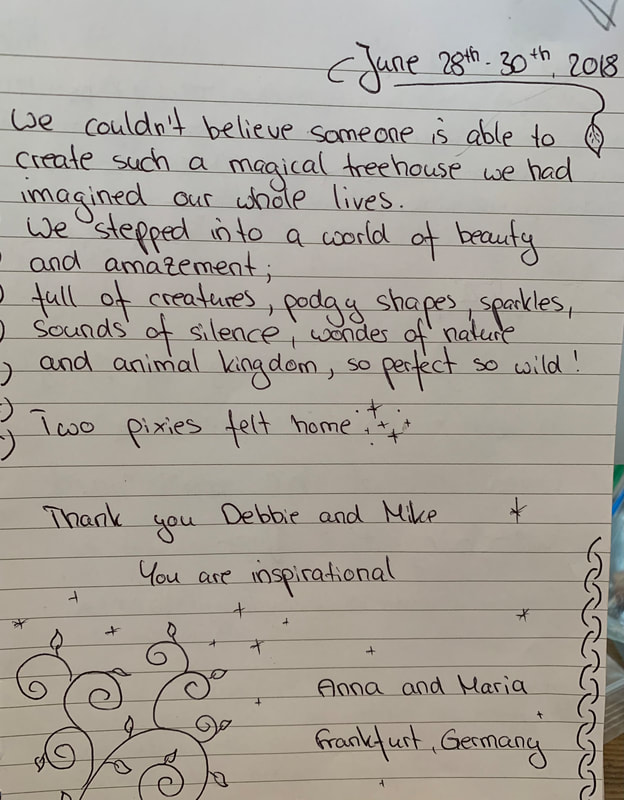 June 28th - 30th, 2018
We couldn't believe someone is able to
create such a magical treehouse we had
imagined our whole lives.
We stepped into a world of beauty
and amazement;
full of creatures, podgy shapes, sparkles,
sounds of silence, wondes of nature
and animal kingdom, so perfect so wild!
Two pixies felt home
Thank you Debbie and Mike
You are inspirational
Anna and Maria
Frankfurt, Germany